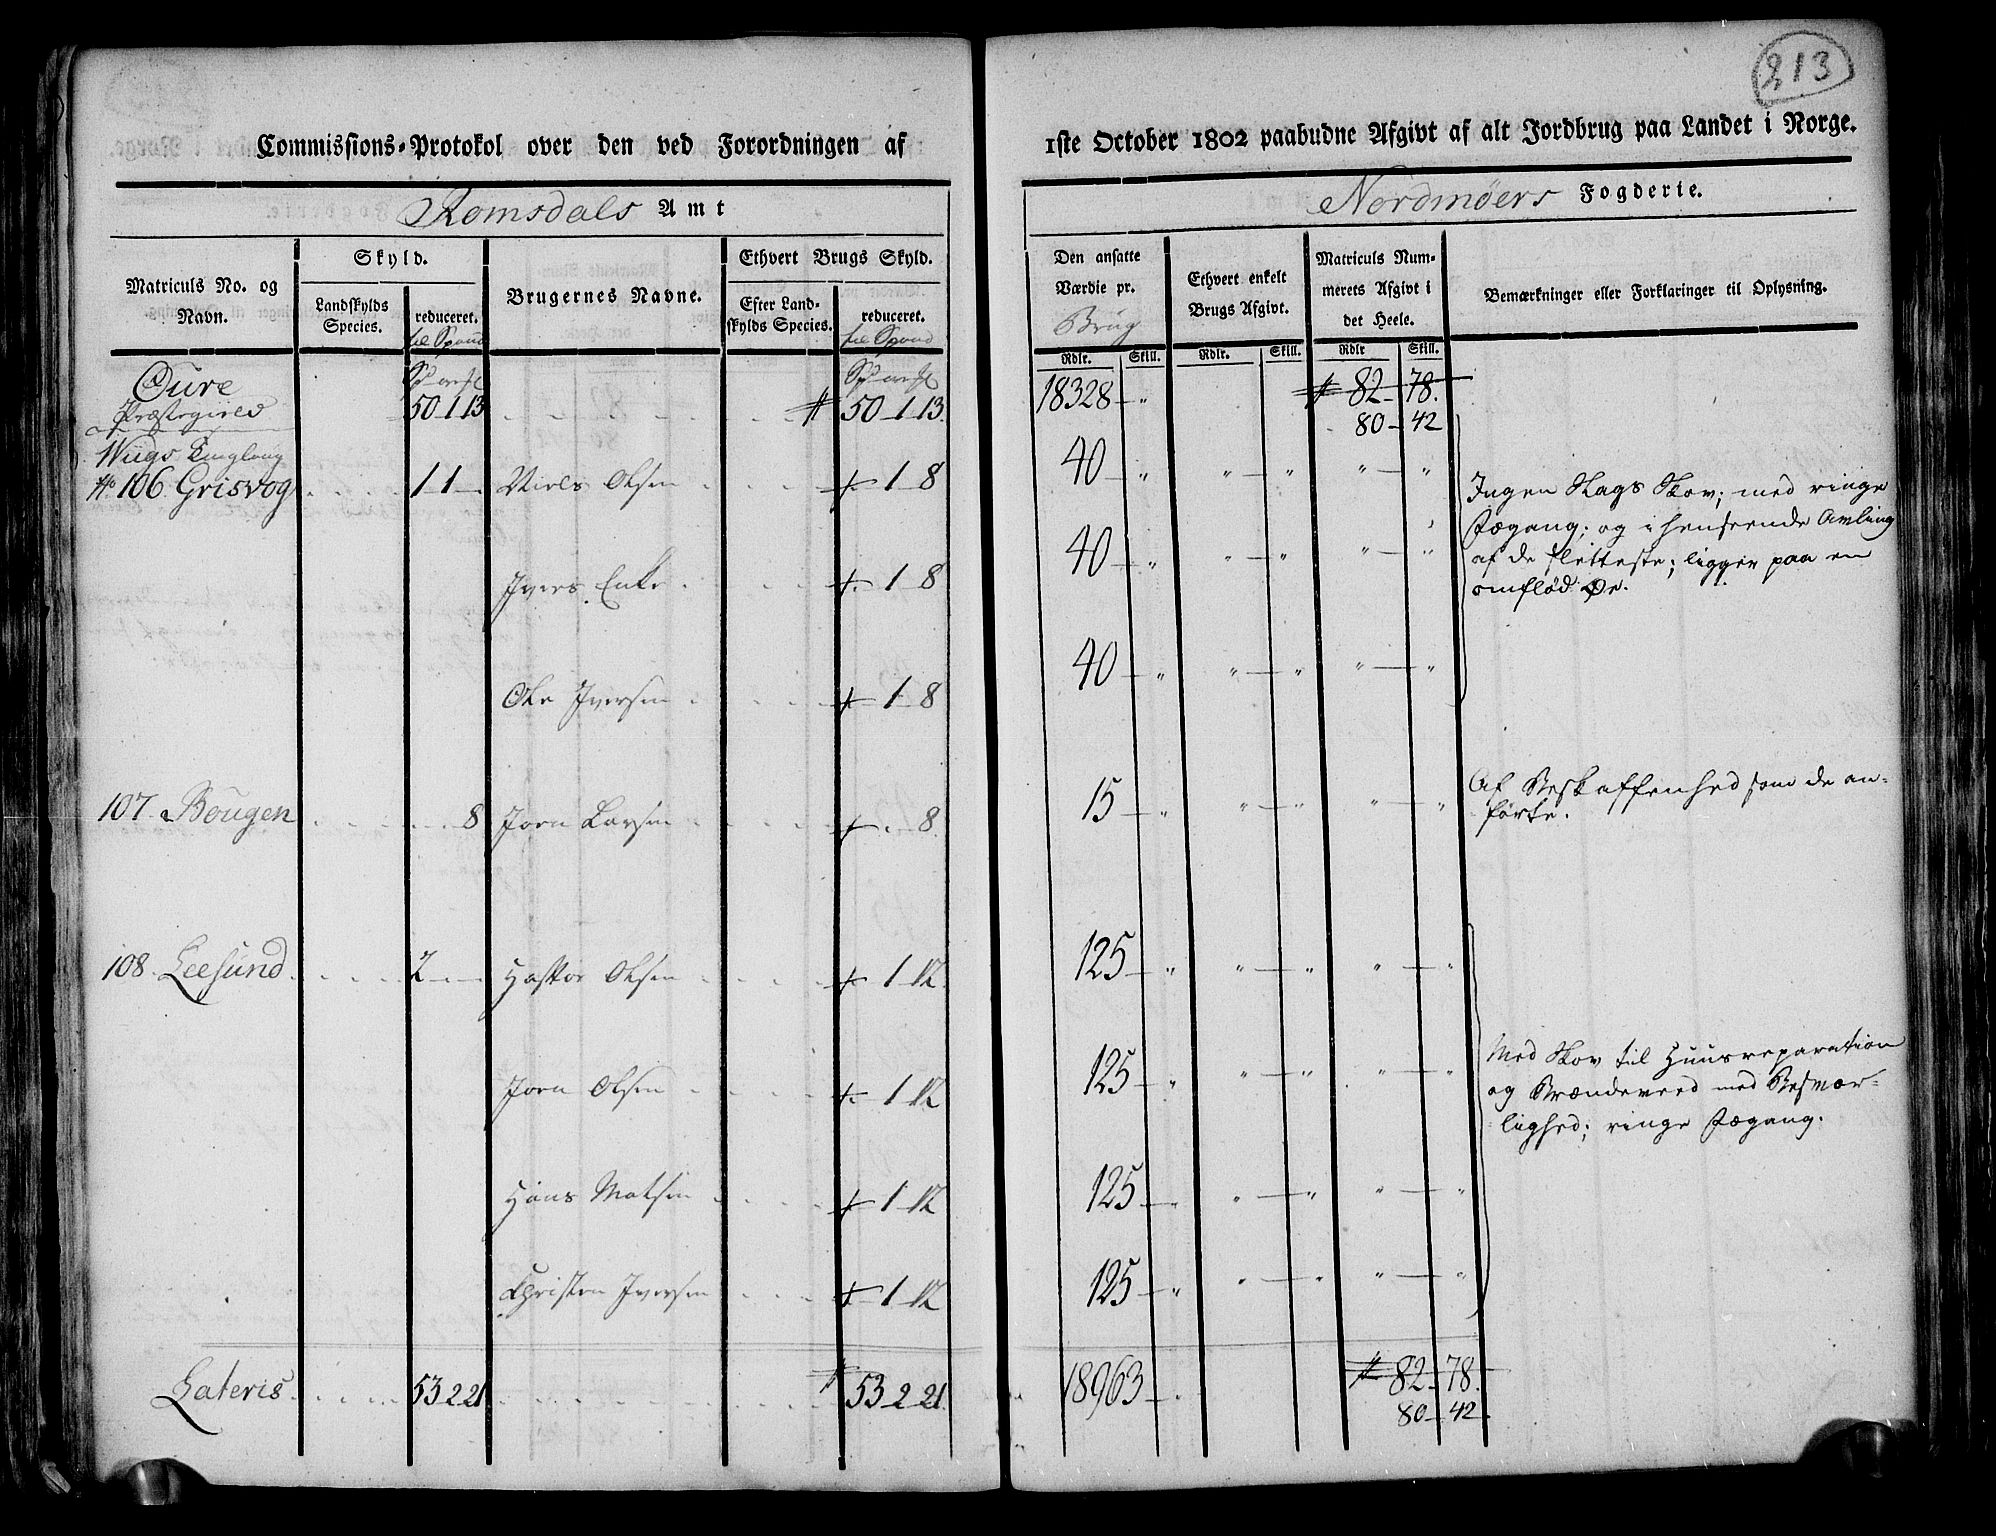 213
Commissions-Protokol over den ved Forordningen af 1ste October 1802 paabudne Afgivt af alt Jordbrug paa Landet i Norge.
Romsdals Amt
Nordmøers Fogderie.
Matriculs No. og Navn.
Skyld.
Landskylds Species.
reduceret. til Spand
Brugernes Navne.
Ethvert Brugs Skyld.
Efter Landskylds Species.
reduceret. til Spand
Den ansatte Værdie pr. Brug
Rdlr. Skill.
Ethvert enkelt Brugs Afgivt.
Rdlr. Skill.
Matriculs Nummerets Afgivt i det Heele.
Rdlr Skill.
Bemærkninger eller Forklaringer til Oplysning.
Øure
Præstegield 50-1-13 50-1-13. 18328-" 82-78.
80-42
No 106. Grisvog 1-1- Niels Olsen 1-8 40-" "-" "-"
Ivers Enke 1-8 40-" "-" "-"
Ole Iversen 1-8 40-" "-" "-"
Ingen Slags Skov; med ringe
Fægang; og i henseende Avling
af de sletteste; ligger paa en
omflød Øe.
107. Bougen 8 Joen Larsen 8. 15-" "-" "-"
Af Beskaffenhed som de an-
førte.
108. Leesund 2- Olsen 1-12. 125-" "-" "-"
Joen Olsen 1-12 125-" "-" "-"
Hans Matsen 1-12 125-" "-" "-"
Christen Iversen 1-12 125-" "-" "-"
Med Skov til Huusreparation
og Brændeveed med Besvær-
lighed; ringe Fægang.
Lateris 53-2-21 53-2-21. 18963- 82-78.
80-42.